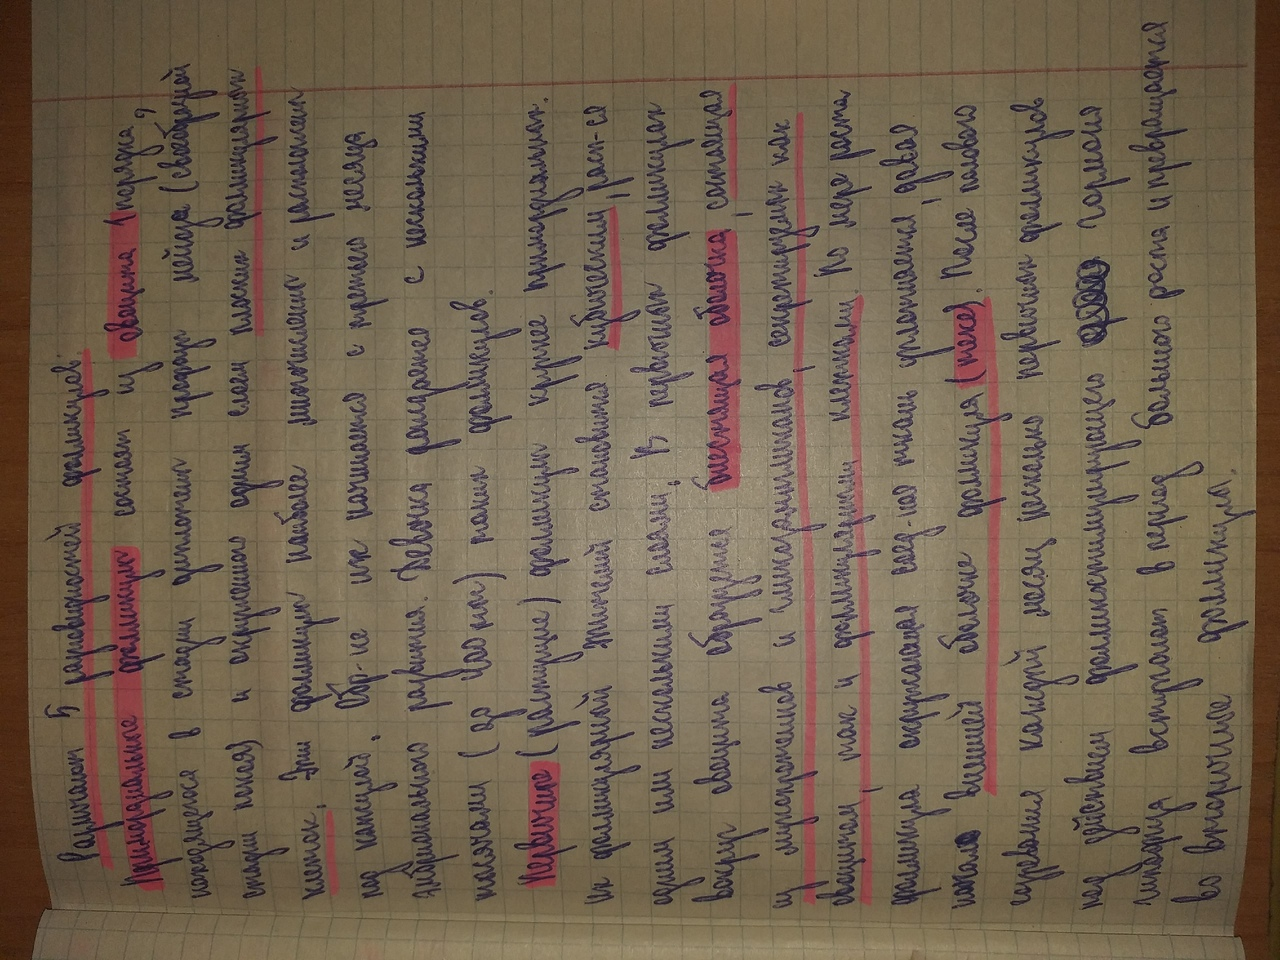 Различают 5 разновидностей фолликулов.
Примордиальные фолликулы состоят из овоцита I порядка,
находящегося в стадии диплотен профазы мейоза (своеобразной
стадии покоя) и окруженного одним слоем плоских фолликулярных
клеток. Эти фолликулы наиболее многочисленны и расположены
под капсулой. Обр-ие их начинается с третьего месяца
эмбрионального развития. Девочка рождается с несколькими
тысячами (до 400 тыс) таких фолликулов.
Первичные (растущие) фолликулы крупнее примордиальных.
Их фолликулярный эпителий становится кубическим, расп-ся
одним или несколькими слоями. В первичных фолликулах
вокруг овоцита образуется блестящая оболочка, состоящая
из мукопротеинов и гликозаминогликанов, секретируемых как
овоцитом, так и фолликулярными клетками. По мере роста
фолликула окружающая соед-ная ткань уплотняется, давая
начало внешней оболочке фолликула (теке). После полового
созревания каждый месяц несколько первичных фолликулов
под действием фолликостимулирующего гормона
гипофиза вступают в период большого роста и превращается
во вторичные фолликулы.